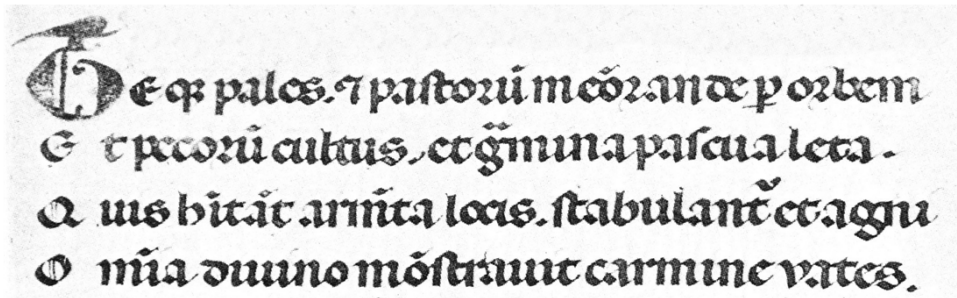 TE qꝫ pales. ⁊ pastorū mēorande ꝑ orbem
Et pecorū cultus. et gͣmina pascua leta.
Quis hītāt armīta locis. stabulant᷑ et agni
Omīa diuino mōstrauit carmine vates.